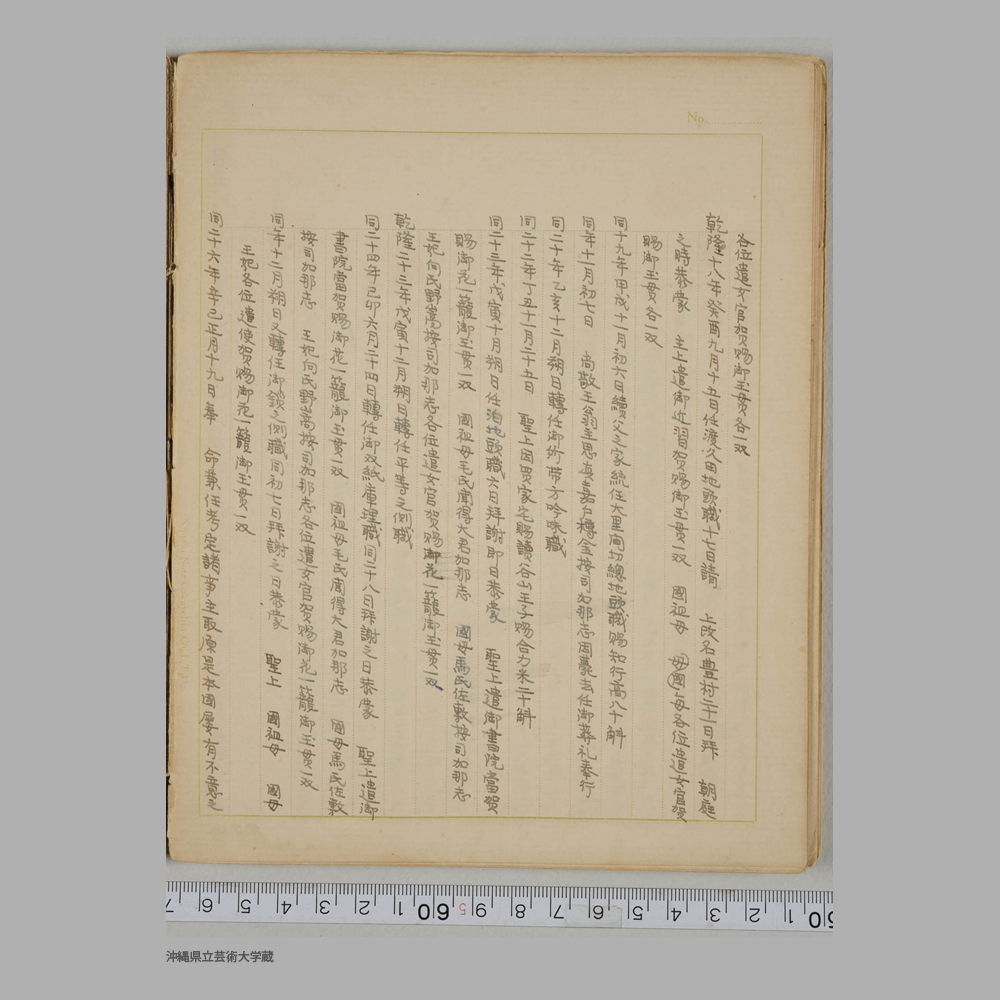 No.
各位遣女官賀賜御玉貫各一双
乾隆十八年癸酉九月十五日任渡久田地頭職十七日請 上改名豊村二十一日拜 朝庭
之時恭蒙 主上遣御近習賀賜御玉貫一双 國祖母 母國母各位遣女官賀
賜御玉貫各一双
同十九年甲戌十一月初六日續父之家統任大里間切總地頭職賜知行高八十斛
同年十一月初七日 尚敬王翁主思真嘉戸樽金按司加那志因薨去任御葬礼奉行
同二十年乙亥十二月朔日轉任御所帯方吟味職
同二十二年丁丑十一月二十五日 聖上因買家宅賜讀谷山王子賜合力米二十斛
同二十三年戊寅十月朔日任泊地頭職六日拜謝即日恭蒙 聖上遣御書院當賀
賜御花一籠御玉貫一双 國祖母毛氏聞得大君加那志 國母馬氏佐敷按司加那志
王妃向氏野嵩按司加那志各位遣女官賀賜御花一籠御玉貫一双
乾隆二十三年戊寅十二月朔日轉任平等之側職
同二十四年己卯六月二十四日轉任御双紙庫理職同二十八日拜謝之日恭蒙 聖上遣御
書院當賀賜御花一籠御玉貫一双 國祖母毛氏聞得大君加那志 國母馬氏佐敷
按司加那志 王妃向氏野嵩按司加那志各位遣女官賀賜御花一籠御玉貫一双
同年十二月朔日又轉任御鎖之側職同初七日拜謝之日恭蒙 聖上 國祖母 國母
王妃各位遣使賀賜御花一籠御玉貫一双
同二十六年辛巳正月十九日奉 命兼任考定諸事主取原是本國屡有不意之
7 6 5 4 3 2 1 60 5 9 8 7 6 5 4 3 2 1 50
沖縄県立芸術大学蔵